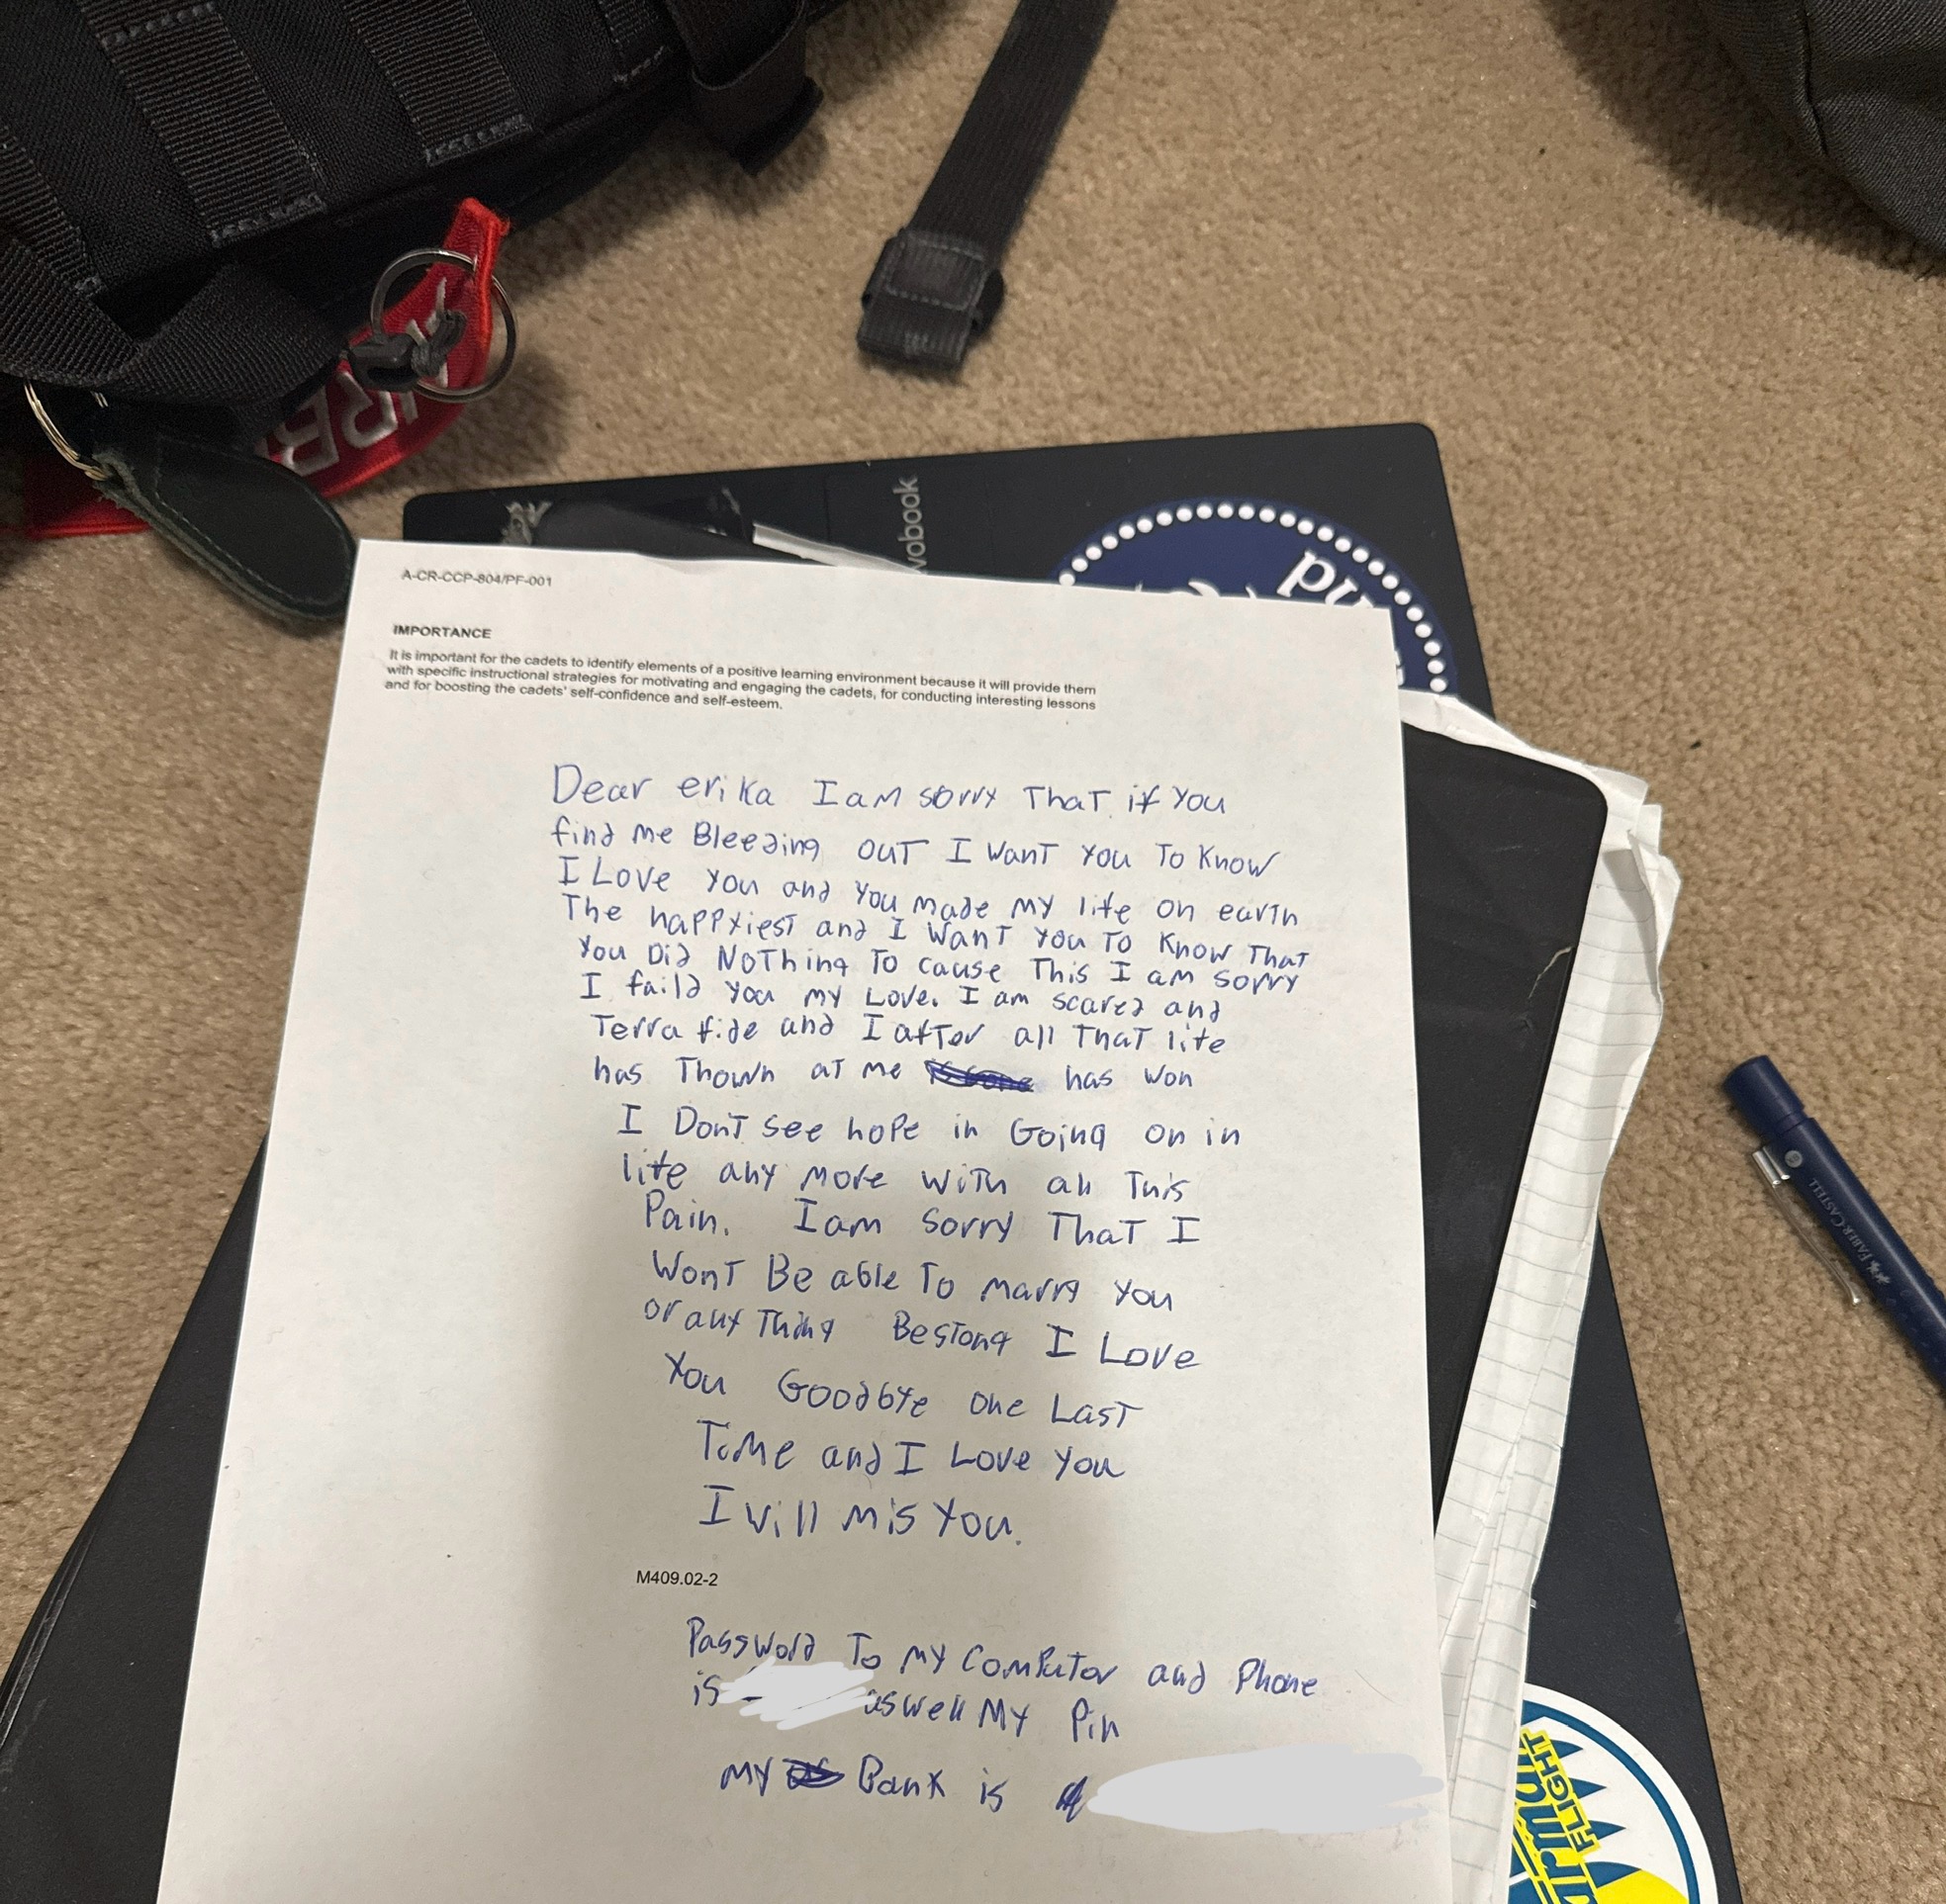 A-CR-CCP-804/PF-001
IMPORTANCE
It is important for the cadets to identify elements of a positive learning environment because it will provide them
with specific instructional strategies for motivating and engaging the cadets, for conducting interesting lessons
and for boosting the cadets' self-confidence and self-esteem.
Dear erika I am sorry That if You
find me Bleeding out I want you To Know
I Love you and you made my life on earth
The happyiest and I want you To Know That
You Did NoThing To cause This I am sorry
I faild you my Love. I am scared and
Terra fide and I after all that life
has Thown at me has won
I Dont see hope in Going on in
life any more with all This
Pain. I am sorry That I
wont Be able To marry you
or any Thing I Love
You Goodbye one Last
Time and I Love you
I will mis You.
M409.02-2
Password To my Computor and Phone
is aswell My Pin
my Bank is
vobook
FABER-CASTELL
FLIGHT